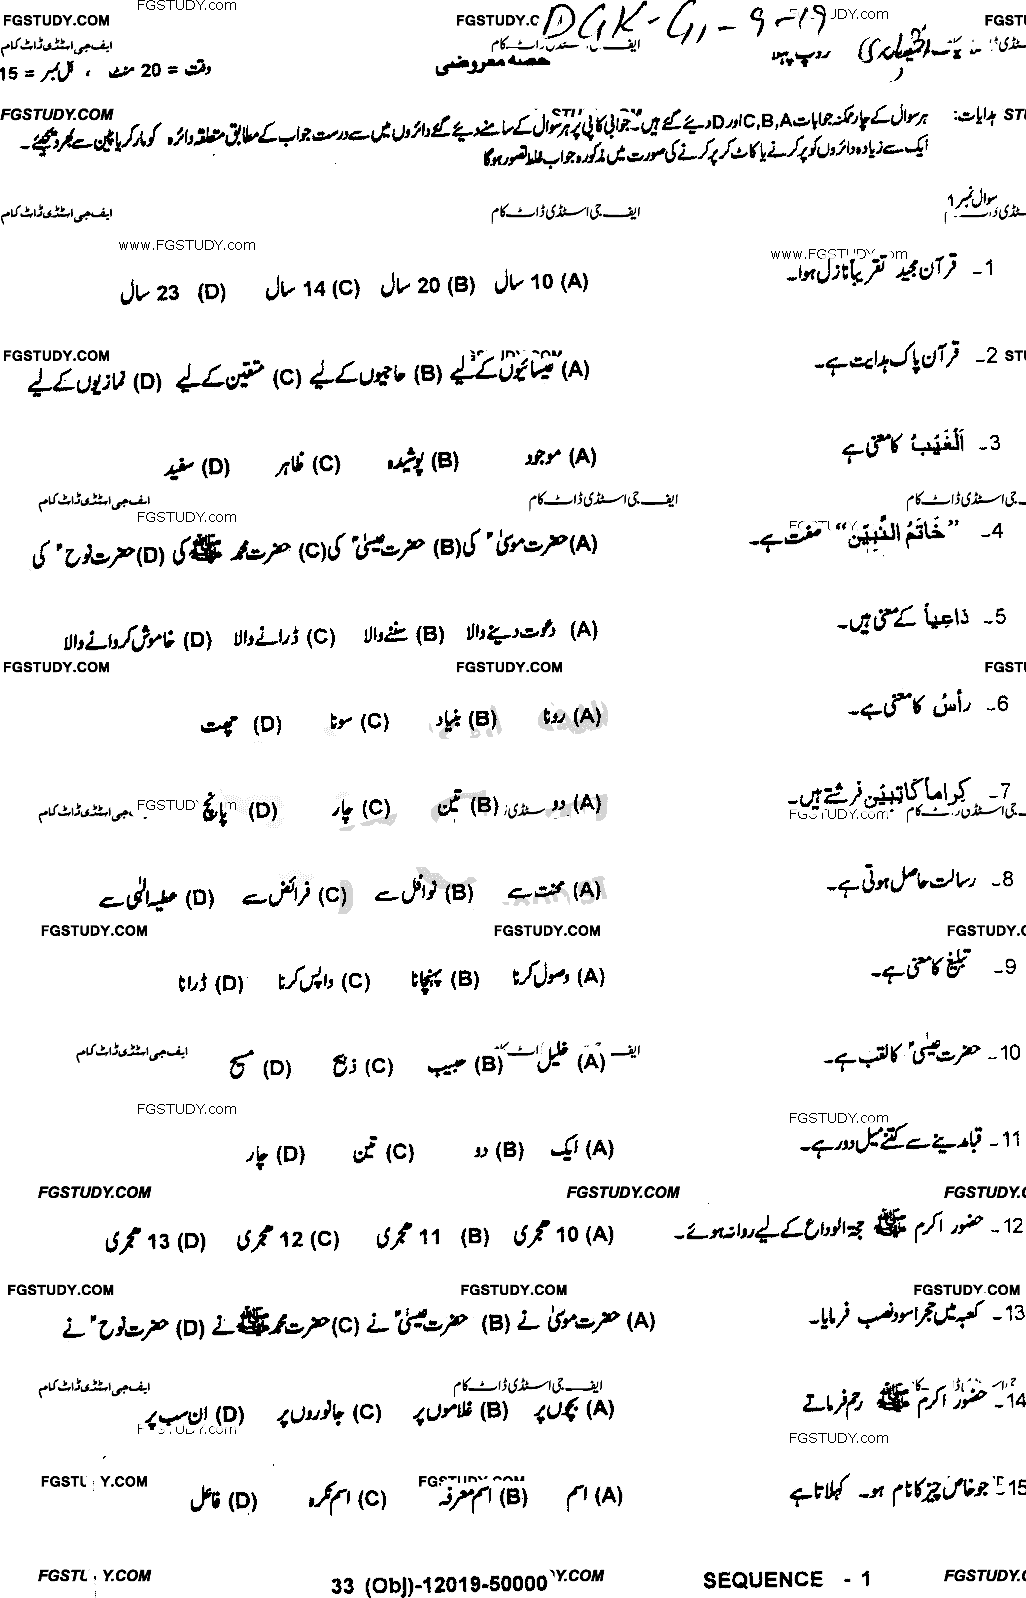 FGSTUDY.com FGSTUDY.C DGK-G1-9-19 JDY.com FGST
ایف جی اسٹڈی ڈاٹ کام (اختیاری) روپ پہلا
وقت = 20 منٹ ، کل نمبر = 15 حصہ معروضی
FGSTUDY.COM
ہدایات: ہر سوال کے چار ممکنہ جوابات A,B,C اور D دیے گئے ہیں۔ جوابی کاپی پر ہر سوال کے سامنے دیے گئے دائروں میں سے درست جواب کے مطابق متعلقہ دائرہ کو مارکر یا پین سے بھر دیجئیے۔
ایک سے زیادہ دائروں کو پر کرنے یا کاٹ کر پر کرنے کی صورت میں مذکورہ جواب غلط تصور ہوگا
سوال نمبر 1
ایف جی اسٹڈی ڈاٹ کام ایف جی اسٹڈی ڈاٹ کام
www.FGSTUDY.com www.FGSTUDY.com
1۔ قرآن مجید تقریباً نازل ہوا۔
(A) 10 سال (B) 20 سال (C) 14 سال (D) 23 سال
FGSTUDY.COM
2۔ قرآن پاک ہدایت ہے۔
(A) عیسائیوں کے لیے (B) حاجیوں کے لیے (C) متقین کے لیے (D) نمازیوں کے لیے
3۔ اَلْغَیْبُ کا معنی ہے
(A) موجود (B) پوشیدہ (C) ظاہر (D) سفید
ایف جی اسٹڈی ڈاٹ کام ایف جی اسٹڈی ڈاٹ کام جی اسٹڈی ڈاٹ کام
FGSTUDY.com
4۔ ”خَاتَمُ النَّبِیّٖن“ صفت ہے۔
(A) حضرت موسیٰؑ کی (B) حضرت عیسیٰؑ کی (C) حضرت محمد ﷺ کی (D) حضرت نوحؑ کی
5۔ دَاعِیاً کے معنی ہیں۔
(A) دعوت دینے والا (B) سننے والا (C) ڈرانے والا (D) خاموش کروانے والا
FGSTUDY.COM FGSTUDY.COM FGSTU
6۔ رأسُ کا معنی ہے۔
(A) رونا (B) بنیاد (C) سونا (D) چھت
7۔ کِراماً کاتِبِیْن فرشتے ہیں۔
(A) دو (B) تین (C) چار (D) پانچ
8۔ رسالت حاصل ہوتی ہے۔
(A) محنت سے (B) نوافل سے (C) فرائض سے (D) عطیہ الٰہی سے
FGSTUDY.COM FGSTUDY.COM FGSTUDY.C
9۔ تبلیغ کا معنی ہے۔
(A) وصول کرنا (B) پہنچانا (C) واپس کرنا (D) ڈرانا
10۔ حضرت عیسیٰؑ کا لقب ہے۔
ایف جی اسٹڈی ڈاٹ کام
(A) خلیل (B) حبیب (C) ذبیح (D) مسیح
FGSTUDY.com FGSTUDY.com
11۔ قبا مدینے سے کتنے میل دور ہے۔
(A) ایک (B) دو (C) تین (D) چار
FGSTUDY.COM FGSTUDY.COM FGSTUDY.C
12۔ حضور اکرم ﷺ حجۃ الوداع کے لیے روانہ ہوئے۔
(A) 10 ہجری (B) 11 ہجری (C) 12 ہجری (D) 13 ہجری
FGSTUDY.COM FGSTUDY.COM FGSTUDY.COM
13۔ کعبہ میں حجر اسود نصب فرمایا۔
(A) حضرت موسیٰ نے (B) حضرت عیسیٰؑ نے (C) حضرت محمد ﷺ نے (D) حضرت نوحؑ نے
ایف جی اسٹڈی ڈاٹ کام ایف جی اسٹڈی ڈاٹ کام
14۔ حضور اکرم ﷺ رحم فرماتے
(A) بچوں پر (B) غلاموں پر (C) جانوروں پر (D) ان سب پر
FGSTUDY.com FGSTUDY.com
15۔ جو خاص چیز کا نام ہو۔ کہلاتا ہے
(A) اسم (B) اسم معرفہ (C) اسم نکرہ (D) فاعل
33 (Obj)-12019-50000 SEQUENCE - 1 FGSTUDY.C